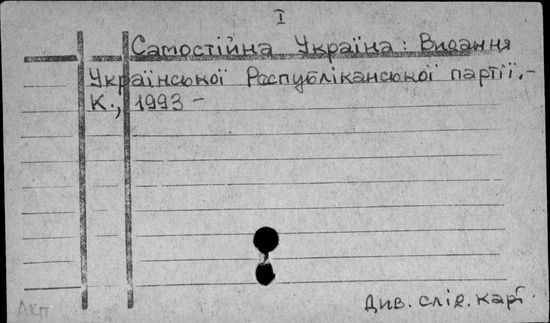 I
Самостійна Україна: Видання
Української Республіканської партії.-
К., 1993 -
Див. слід. карт.